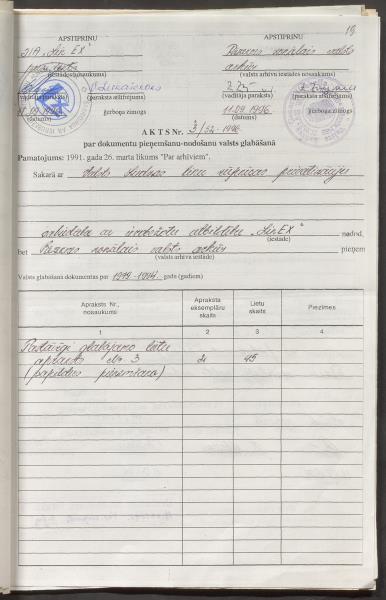 19
APSTIPRINU APSTIPRINU
SIA „Lin EX" Rēzeknes zonālais valsts
prezidents arhīvs
(iestādes nosaukums) (valsts arhīva iestādes nosaukums)
(vadītāja paraksts) (paraksta atšifrējums) (vadītāja paraksts) (paraksta atšifrējums)
09.1996 11.09.1996
(datums) ģerboņa zīmogs (datums) ģerboņa zīmogs
AKTS Nr. 3/52-1996
par dokumentu pieņemšanu-nodošanu valsts glabāšanā
Pamatojums: 1991. gada 26. marta likums "Par arhīviem".
Sakarā ar Valsts linu privatizāciju
sabiedrība ar ierobežotu atbildību „Lin EX" nodod,
(iestāde)
bet Rēzeknes zonālais valsts arhīvs pieņem
(valsts arhīva iestāde)
Valsts glabāšanā dokumentus par 1944-1994. gadu (gadiem)
Apraksts Nr., nosaukums Apraksta eksemplāru skaits Lietu skaits Piezīmes
1 2 3 4
Pastāvīgi glabājamo lietu
apraksts No 3 45
(papildus pieņemšana)